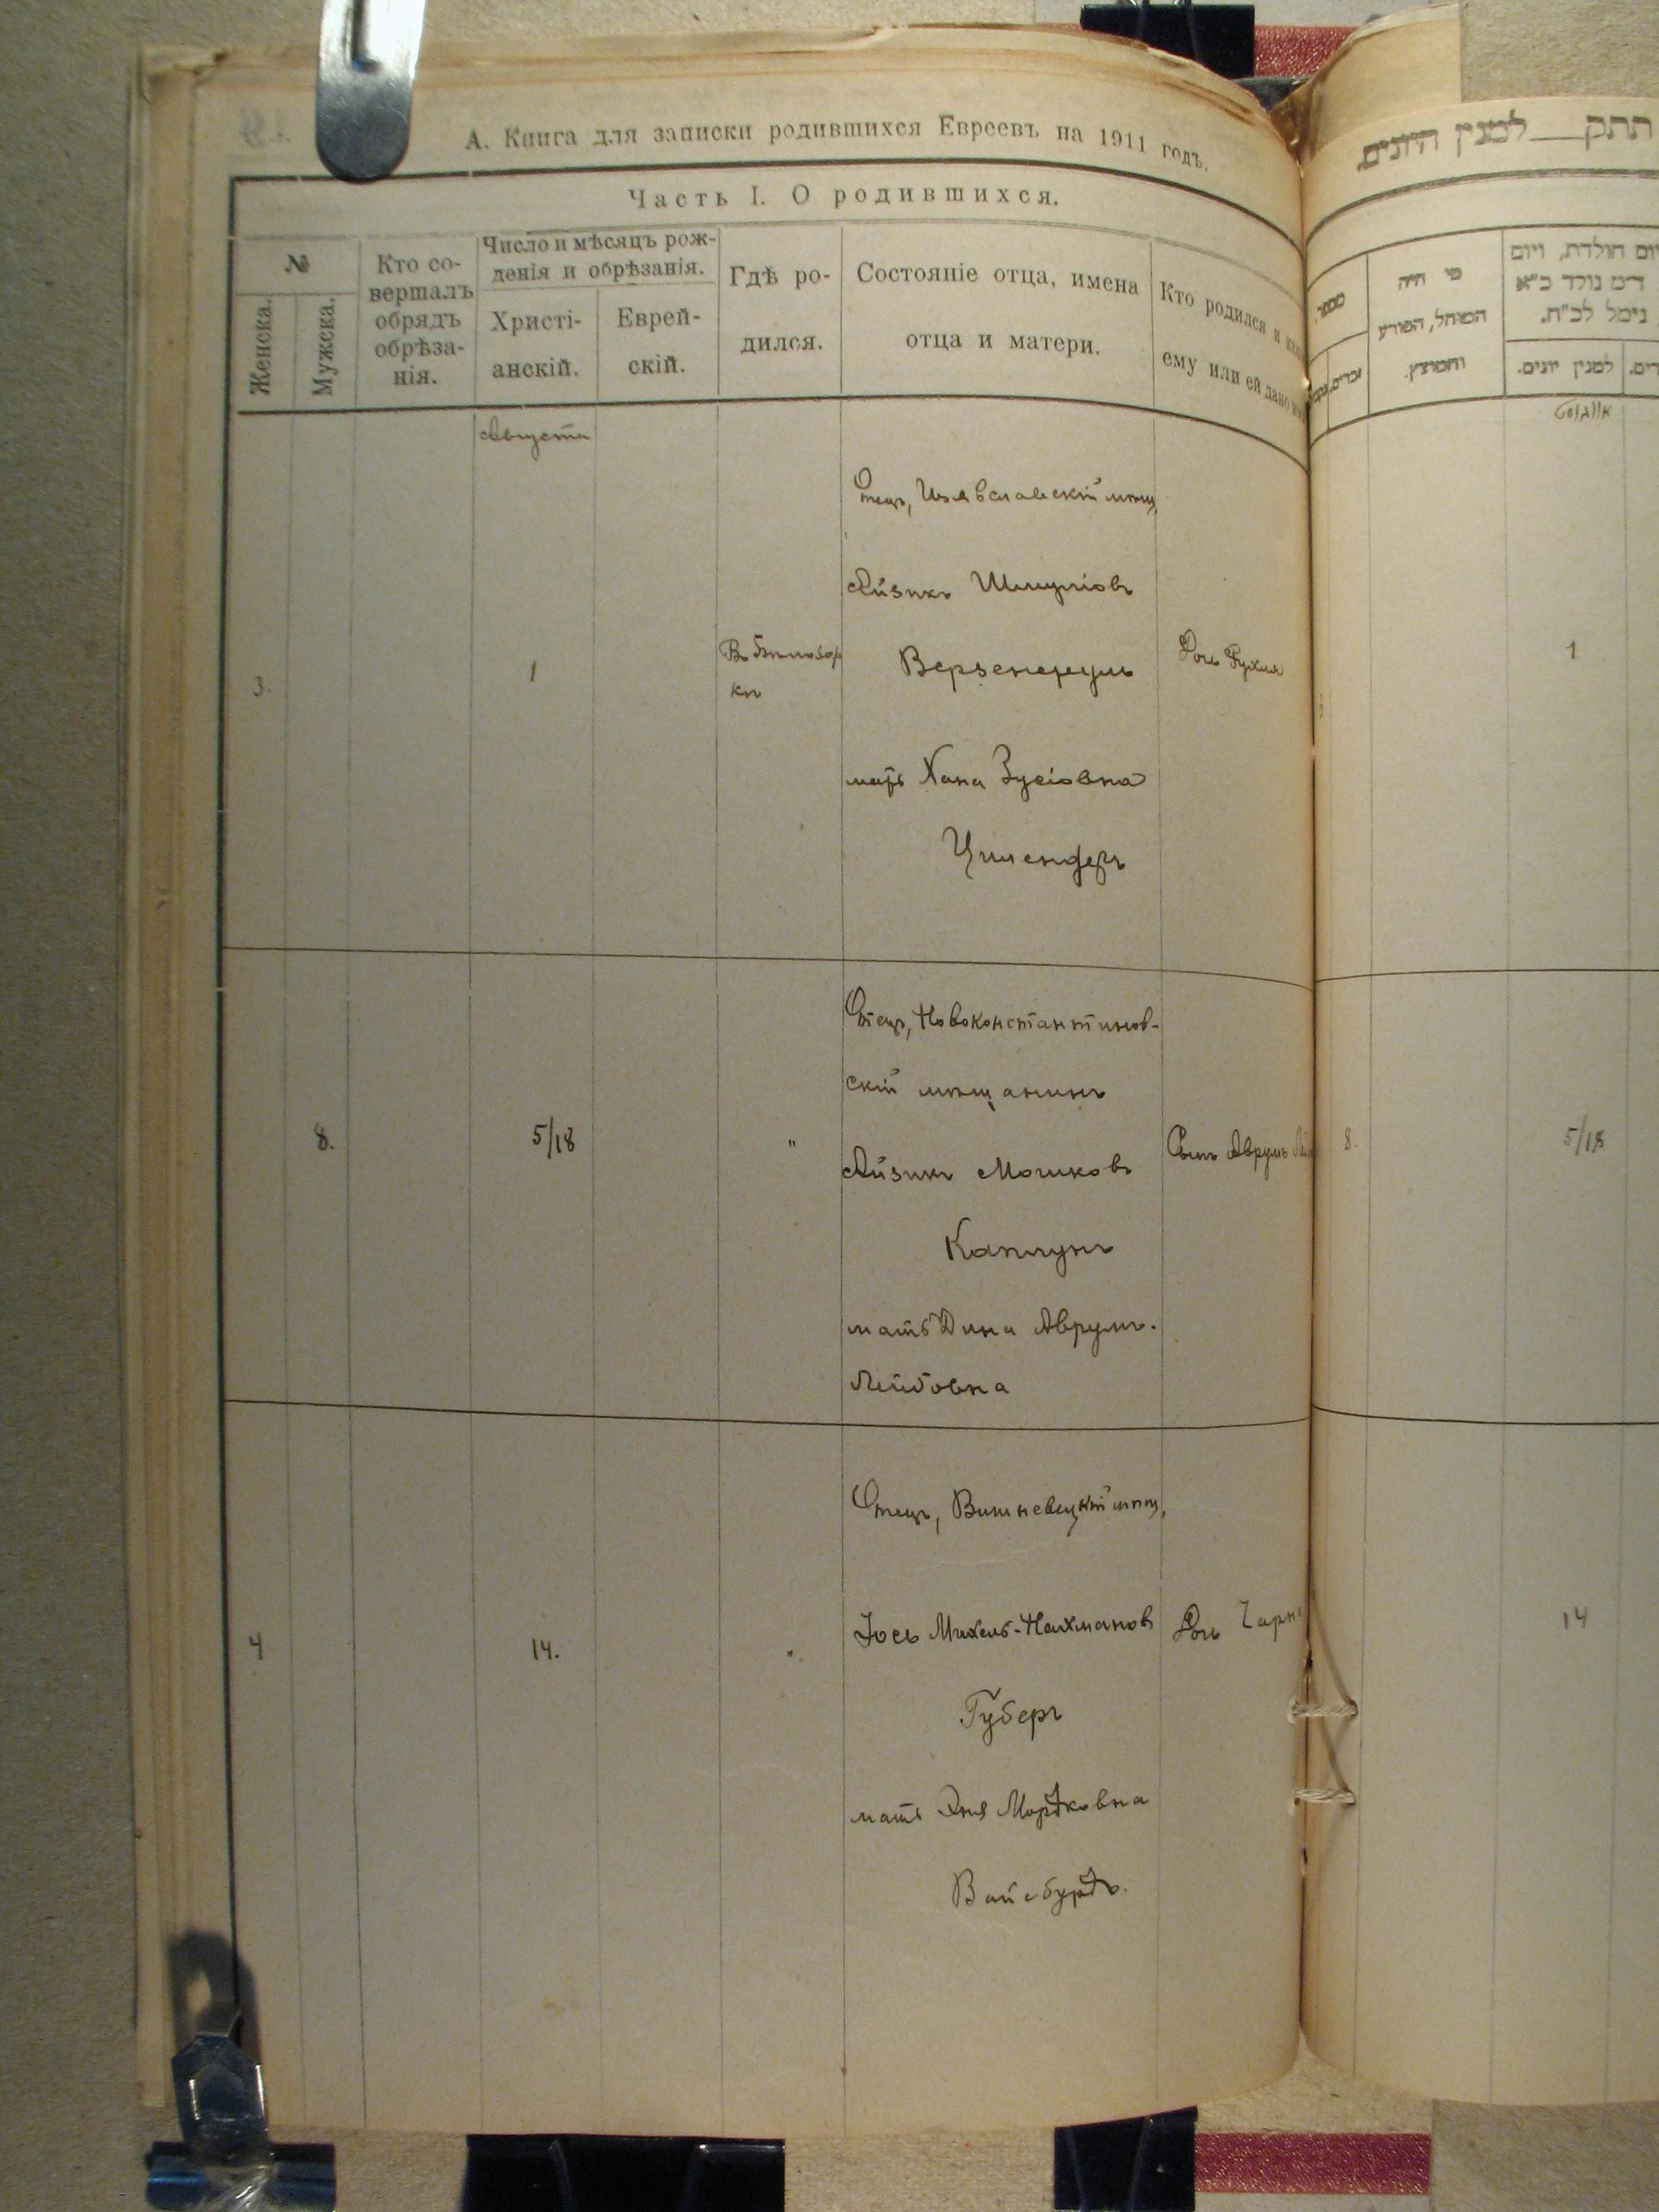 А. Книга для записки родившихся Евреевъ на 1911 годъ.
Часть I. О родившихся.
№
Женска.
Мужска.
Кто со-
вершалъ
обрядъ
обрѣза-
нія.
Число и мѣсяцъ рож-
денія и обрѣзанія.
Христі-
анскій.
Еврей-
скій.
Гдѣ ро-
дился.
Состояніе отца, имена
отца и матери.
Кто родился и
ему или ей дано
Августа
3.
1
Въ Бѣлозор
кѣ
Отецъ, Изяславскій мѣщ,
Айзикъ Шмулiовъ
мать Хана Зусіовна
Дочь Рухля
8.
5/18
"
Отецъ, Новоконстантинов-
скій мѣщанинъ
Айзикъ Мошковъ
Каплунъ
мать Дина Аврумъ-
Лейбовна
Сынъ Аврумъ
4
14.
"
Отецъ, Вишневецкій мѣщ,
Іось Михель-Нахмановъ
Губеръ
мать Эня Мордковна
Вайсбурдъ.
Дочь Чарн
תתק למנין היונים.
מספר.
זכרים.
מי היה
המוהל, הפורע
והמוצץ.
יום הולדת, ויום
נימל לב"ח.
למנין יונים.
אוגוסט
1
8.
5/18
14